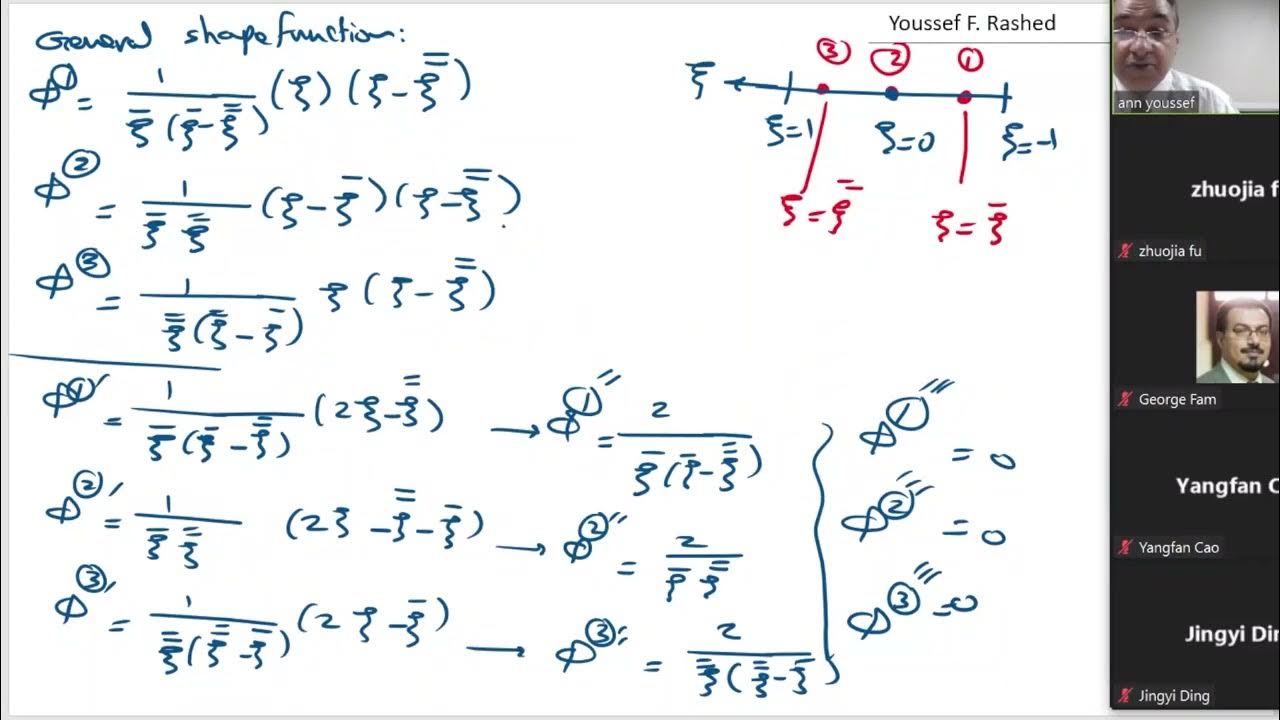 General shape function:
ϕ① = 1 / ξ̄(ξ̄-ξ̿) (ξ) (ξ-ξ̿)
ϕ② = 1 / ξ̄ ξ̿ (ξ-ξ̄)(ξ-ξ̿)
ϕ③ = 1 / ξ̿(ξ̿-ξ̄) ξ (ξ-ξ̿)
ϕ①′ = 1 / ξ̄(ξ̄-ξ̿) (2ξ-ξ̿) → ϕ①″ = 2 / ξ̄(ξ̄-ξ̿)
ϕ②′ = 1 / ξ̄ ξ̿ (2ξ-ξ̿-ξ̄) → ϕ②″ = 2 / ξ̄ ξ̿
ϕ③′ = 1 / ξ̿(ξ̿-ξ̄) (2ξ-ξ̄) → ϕ③″ = 2 / ξ̿(ξ̿-ξ̄)
ϕ①‴ = 0
ϕ②‴ = 0
ϕ③‴ = 0
Youssef F. Rashed
③ ② ①
ξ
ξ=1 ξ=0 ξ=-1
ξ=ξ̿ ξ=ξ̄
ann youssef
zhuojia f
zhuojia fu
George Fam
Yangfan C
Yangfan Cao
Jingyi Din
Jingyi Ding